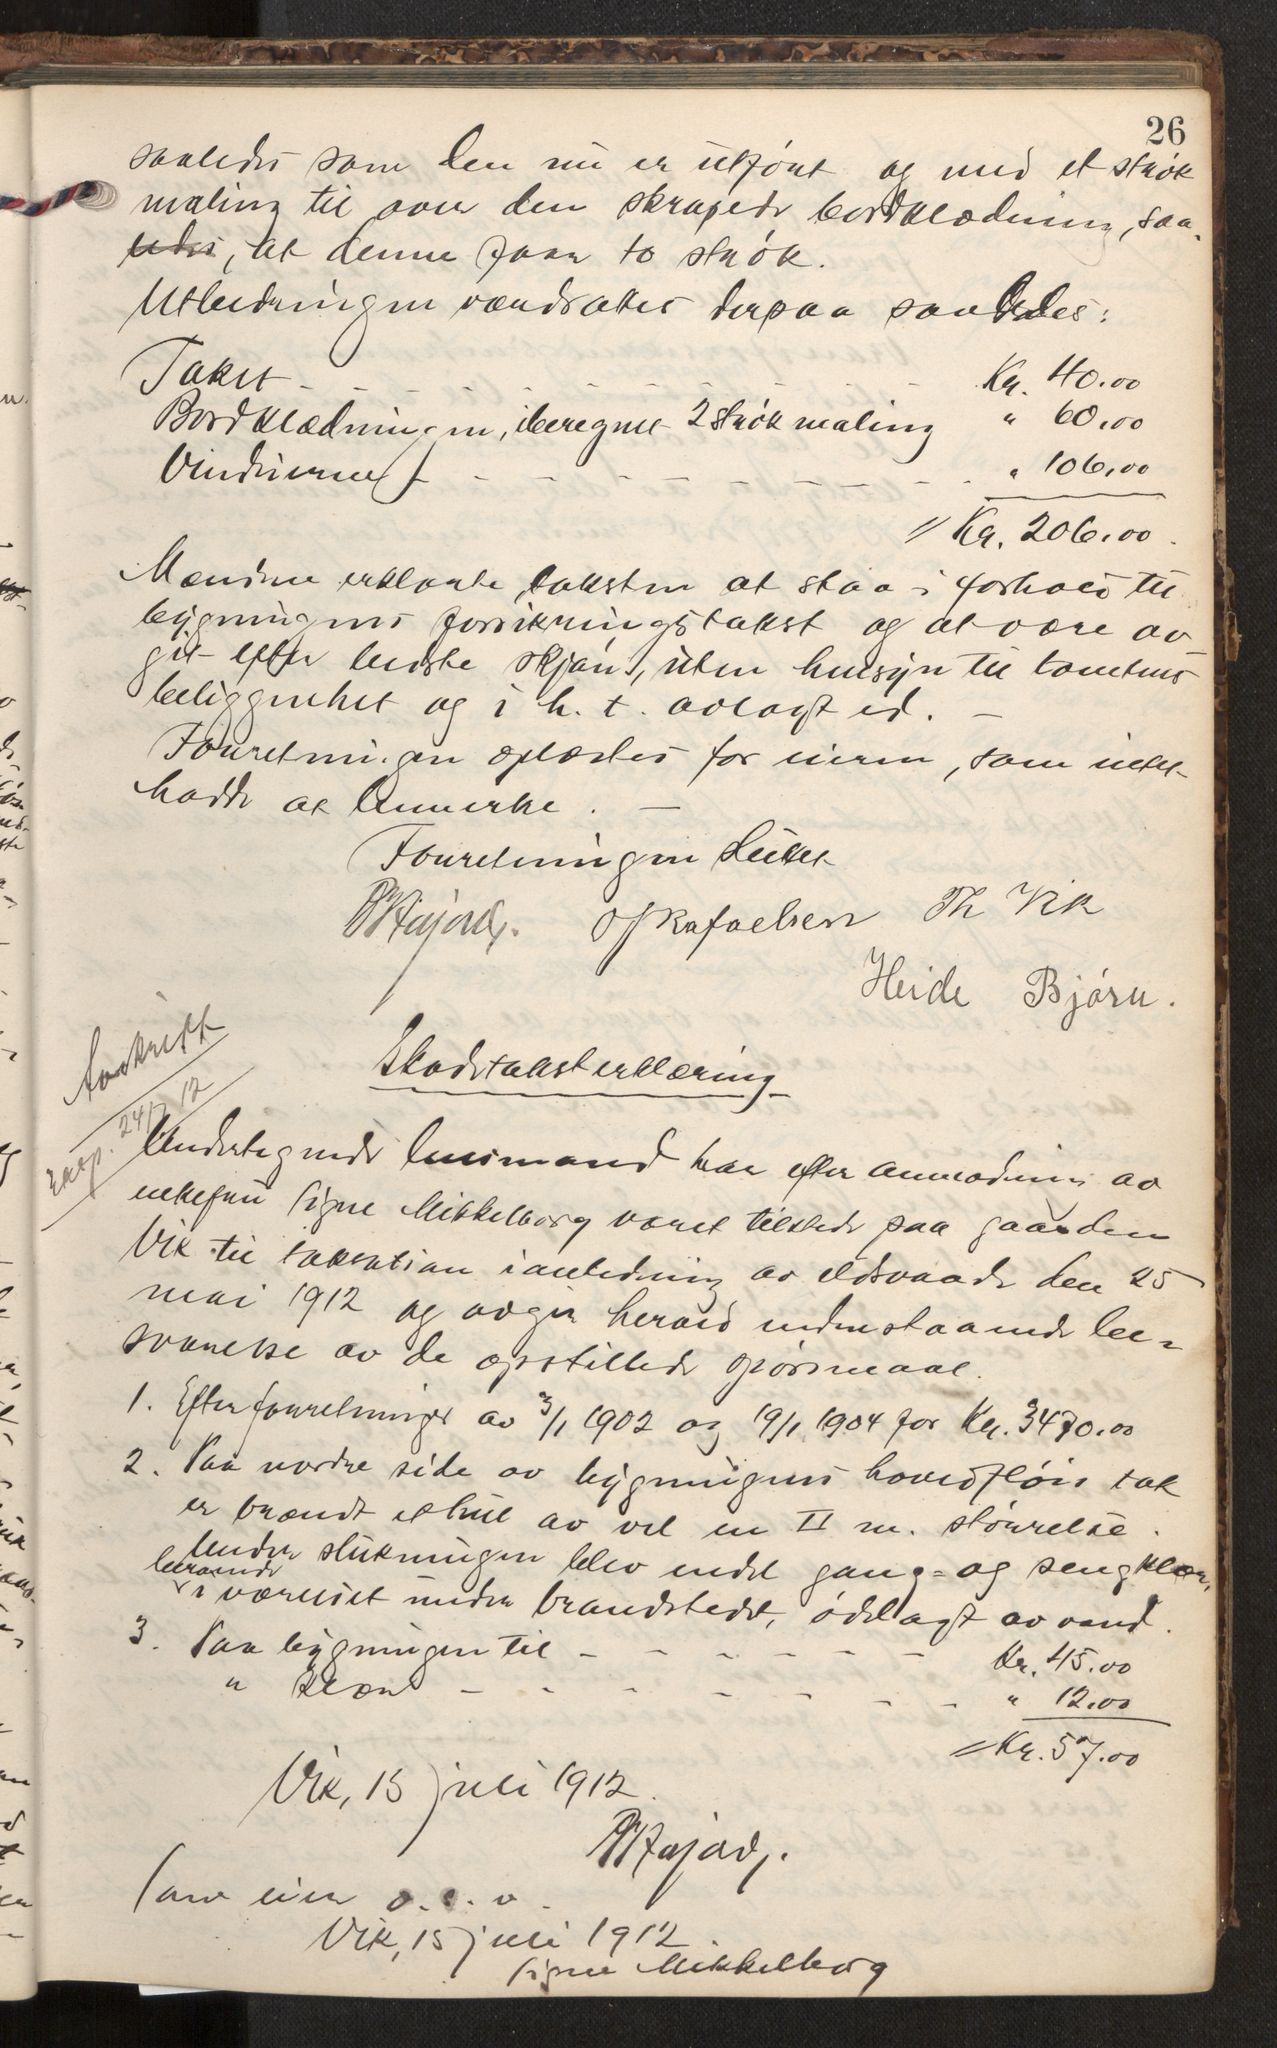 26
saaledes som den nu er utført og med et strøk
maling til over den skrapede bordklædning, saa-
ledes, at denne faar to strøk.
Utbedringen værdsattes derpaa saaledes:
Taket - - - - - - - Kr. 40.00
Bordklædningen, iberegnet 2 strøk maling " 60.00
Vinduerne - - - - - - - - - " 106.00
// Kr. 206.00.
Mændene erklærte taksten at staa i forhold til
bygningens forsikringstakst og at være av-
git efter bedste skjøn, uten hensyn til tomtens
beliggenhet og i h. t. avlagt ed. -
Forretningen oplæstes for eieren, som intet
hadde at bemerke. -
Forretningen sluttet
O J Rafaelsen Th Vik
Heide Bjørn.
Avskrift
24/7 12
Skadetakst erklæring
Undertegnede lensmand har efter anmodning av
enkefru Signe Mikkelborg været tilstede paa gaarden
Vik til taksation i anledning av ildsvaade den 25
mai 1912 og avgir herved nedenstaaende be-
svarelse av de opstillede spørsmaal.
1. Efter forretninger av 3/1 1902 og 19/1 1904 for Kr. 3470.00
2. Paa nordre side av bygningens hovedfløis tak
er brændt et hul av vel en □ m. størrelse.
Under slukningen blev endel gang- og sengklær,
beroende
i værelset under brandstedet, ødelagt av vand.
3. Paa bygningen til - - - - - - Kr. 45.00
" klær - - - - - - - - " 12.00
// Kr. 57.00
Vik, 15 juli 1912.
Som eier o. s. v.
Vik, 15 juli 1912.
Signe Mikkelborg